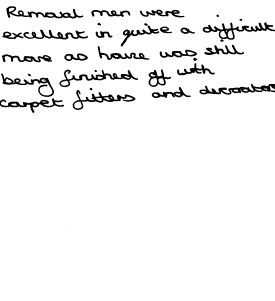 Removal men were
excellent in quite a difficult
move as house was still
being finished off with
carpet fitters and decorators